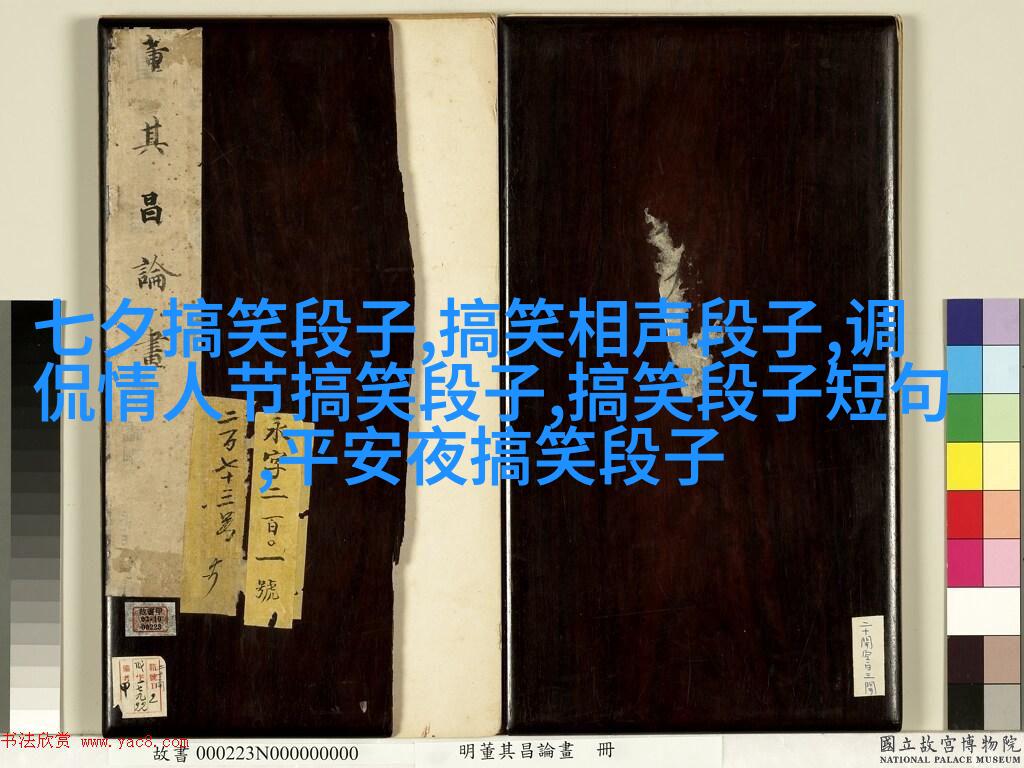 董其昌論畫
七夕搞笑段子,搞笑相声段子,调
侃情人节搞笑段子,搞笑段子短句
,平安夜搞笑段子
永字二百〇一號
二万七十三號
故書甲
03-10
00223
二十開空白三開
书法欣赏 www.yac8.com
故書 000223N000000000
明董其昌論畫 冊
國立故宮博物院
NATIONAL PALACE MUSEUM